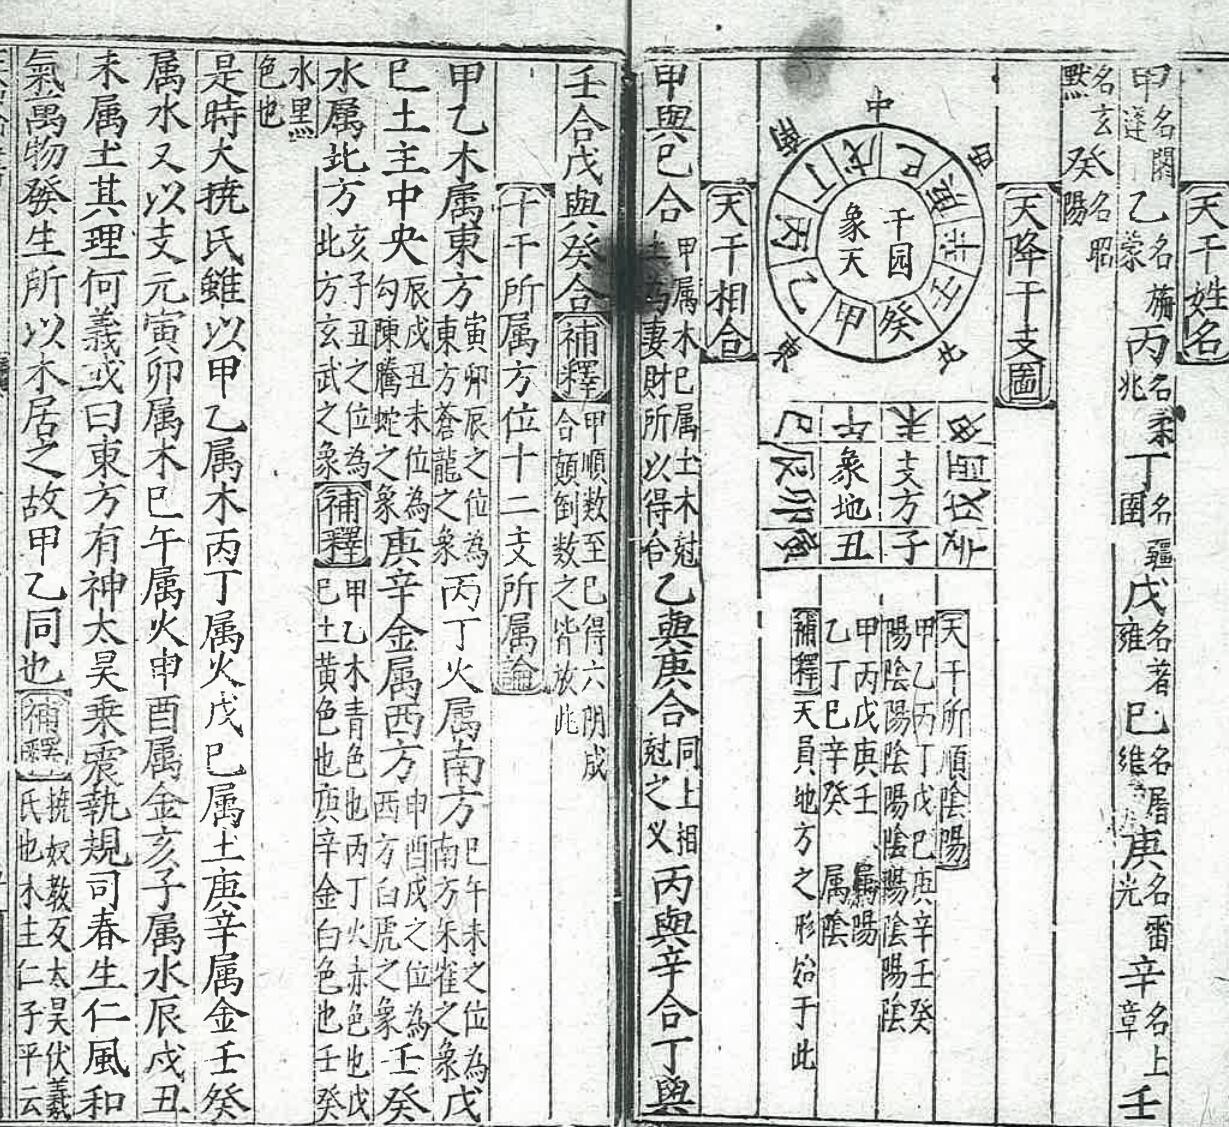 天干姓名
甲名閼逢乙名旃蒙丙名柔兆丁名彊圉戊名著雍巳名屠維庚名雷光辛名上章壬
名玄黙癸名昭陽
天降干支圖
中
西
南
東
北
戊巳庚辛壬癸甲乙丙丁
干园象天
申未午巳
酉支方象地辰
戌卯
亥子丑寅
天干所順陰陽
甲乙丙丁戊巳庚辛壬癸
陽陰陽陰陽陰陽陰陽陰
甲丙戊庚壬属陽
乙丁巳辛癸属陰
補釋天員地方之形始于此
天干相合
甲與巳合甲属木巳属土木尅土為妻財所以得合乙與庚合同上相尅之义丙與辛合丁與
壬合戊與癸合補釋甲順数至巳得六阴成合顛倒数之皆放此
十干所属方位十二支所属論
甲乙木属東方寅卯辰之位為東方蒼龍之象丙丁火属南方巳午未之位為南方朱雀之象戊
巳土主中央辰戌丑未位為勾陳騰蛇之象庚辛金属西方申酉戌之位為西方白虎之象壬癸
水属北方亥子丑之位為北方玄武之象補釋甲乙木青色也丙丁火赤色也戊巳土黄色也庚辛金白色也壬癸
水黑色也
是時大撓氏雖以甲乙属木丙丁属火戊巳属土庚辛属金壬癸
属水又以支元寅卯属木巳午属火申酉属金亥子属水辰戌丑
未属土其理何義或曰東方有神太昊乗震執規司春生仁風和
氣萬物發生所以木居之故甲乙同也補釋撓奴教反太昊伏羲氏也木主仁子平云